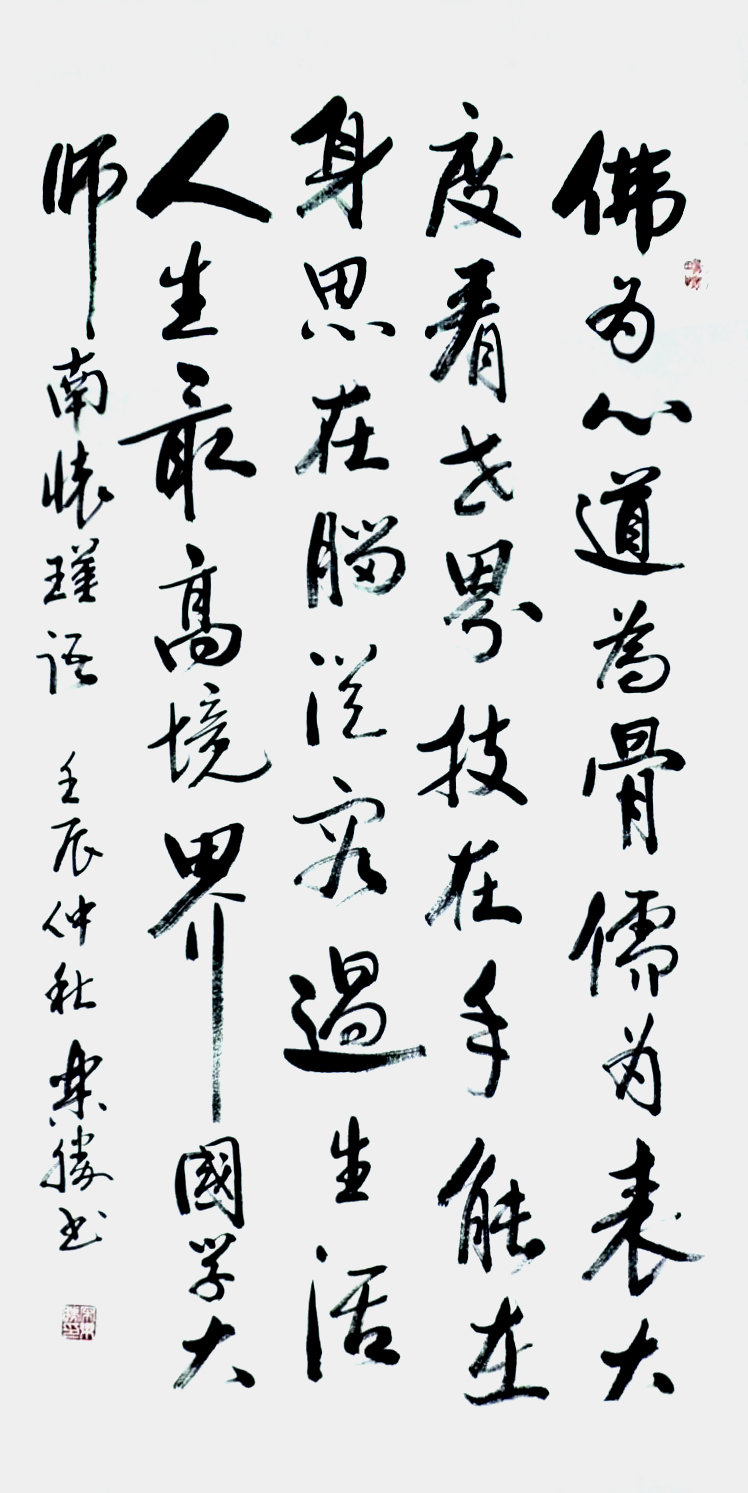 佛为心道為骨儒为表大
度看世界技在手能在
身思在腦從容過生活
人生最高境界國学大
师南懷瑾语 壬辰仲秋 樂勝书